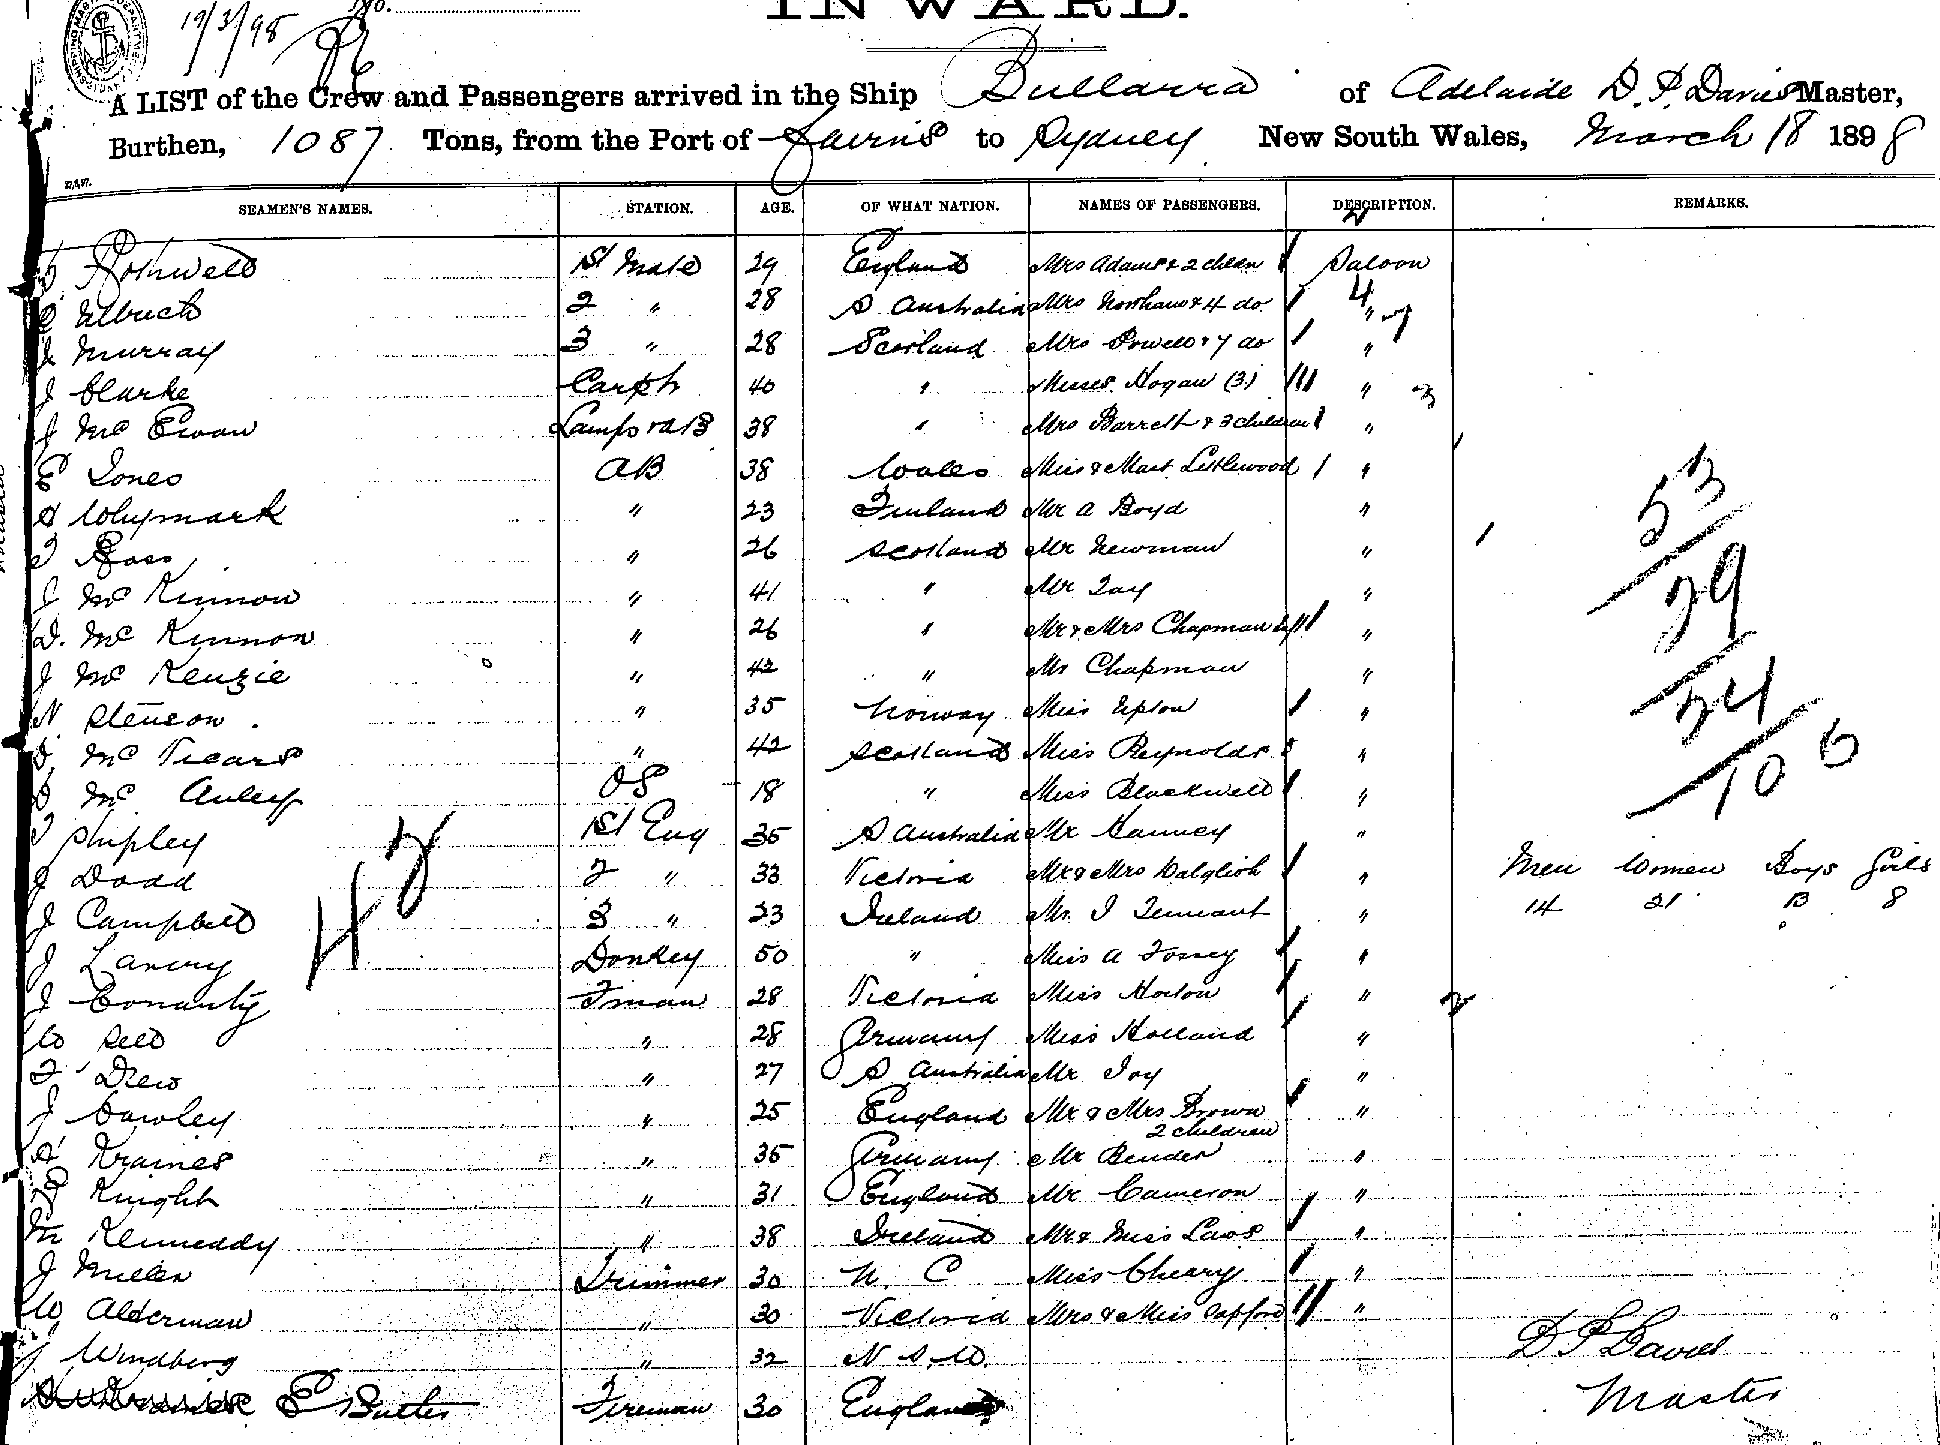 19/3/98 No.
INWARD.
A LIST of the Crew and Passengers arrived in the Ship Bullarra of Adelaide D. P. Davies Master,
Burthen, 1087 Tons, from the Port of Cairns to Sydney New South Wales, March 18 1898
SEAMEN'S NAMES. STATION. AGE. OF WHAT NATION. NAMES OF PASSENGERS. DESCRIPTION. REMARKS.
Rothwell 1st Mate 29 England Mrs Adams & 2 chldn Saloon
Ulbrich 2 " 28 S Australia Mrs & 4 do "
J Murray 3 " 28 Scotland Mrs Powell & 7 do "
J Clarke Carptr 40 " Misses Hogan (3) "
J McEwan Lamps 38 " Mrs Barrett & 3 children "
E Jones AB 38 Wales Miss & Mast Littlewood "
A Whymark " 23 Finland Mr A Boyd "
Ross " 26 Scotland Mr Newman "
J McKinnon " 41 " Mr "
D. McKinnon " 26 " Mr & Mrs Chapman "
J McKenzie " 42 " Mr Chapman "
N. Stenson " 35 Norway Miss Upton "
McVicars " 42 Scotland Miss Reynolds "
McAuley OS 18 " Miss Blackwell "
Shipley 1st Eng 35 S Australia Mr "
J Dodd 2 " 33 Victoria Mr & Mrs Dalglish "
J Campbell 3 " 23 Ireland Mr J Tennant "
J Lavery Donkey 50 " Miss A "
J Fman 28 Victoria Miss Horton "
W Sell " 28 Germany Miss Holland "
Drew " 27 S Australia Mr Joy "
J Cawley " 25 England Mr & Mrs Brown "
2 children
Kraines " 35 Germany Mr Bender "
Knight " 31 England Mr Cameron "
M Kenneddy " 38 Ireland Mr & Miss "
J Miller Trimmer 30 N. C Miss Cheary "
W Alderman " 30 Victoria Mrs & Miss "
J Windberg " 32 N.S.W.
E Butler Fireman 30 England
42
53
29
24
106
Men Women Boys Girls
14 21 13 8
D P Davies
Master